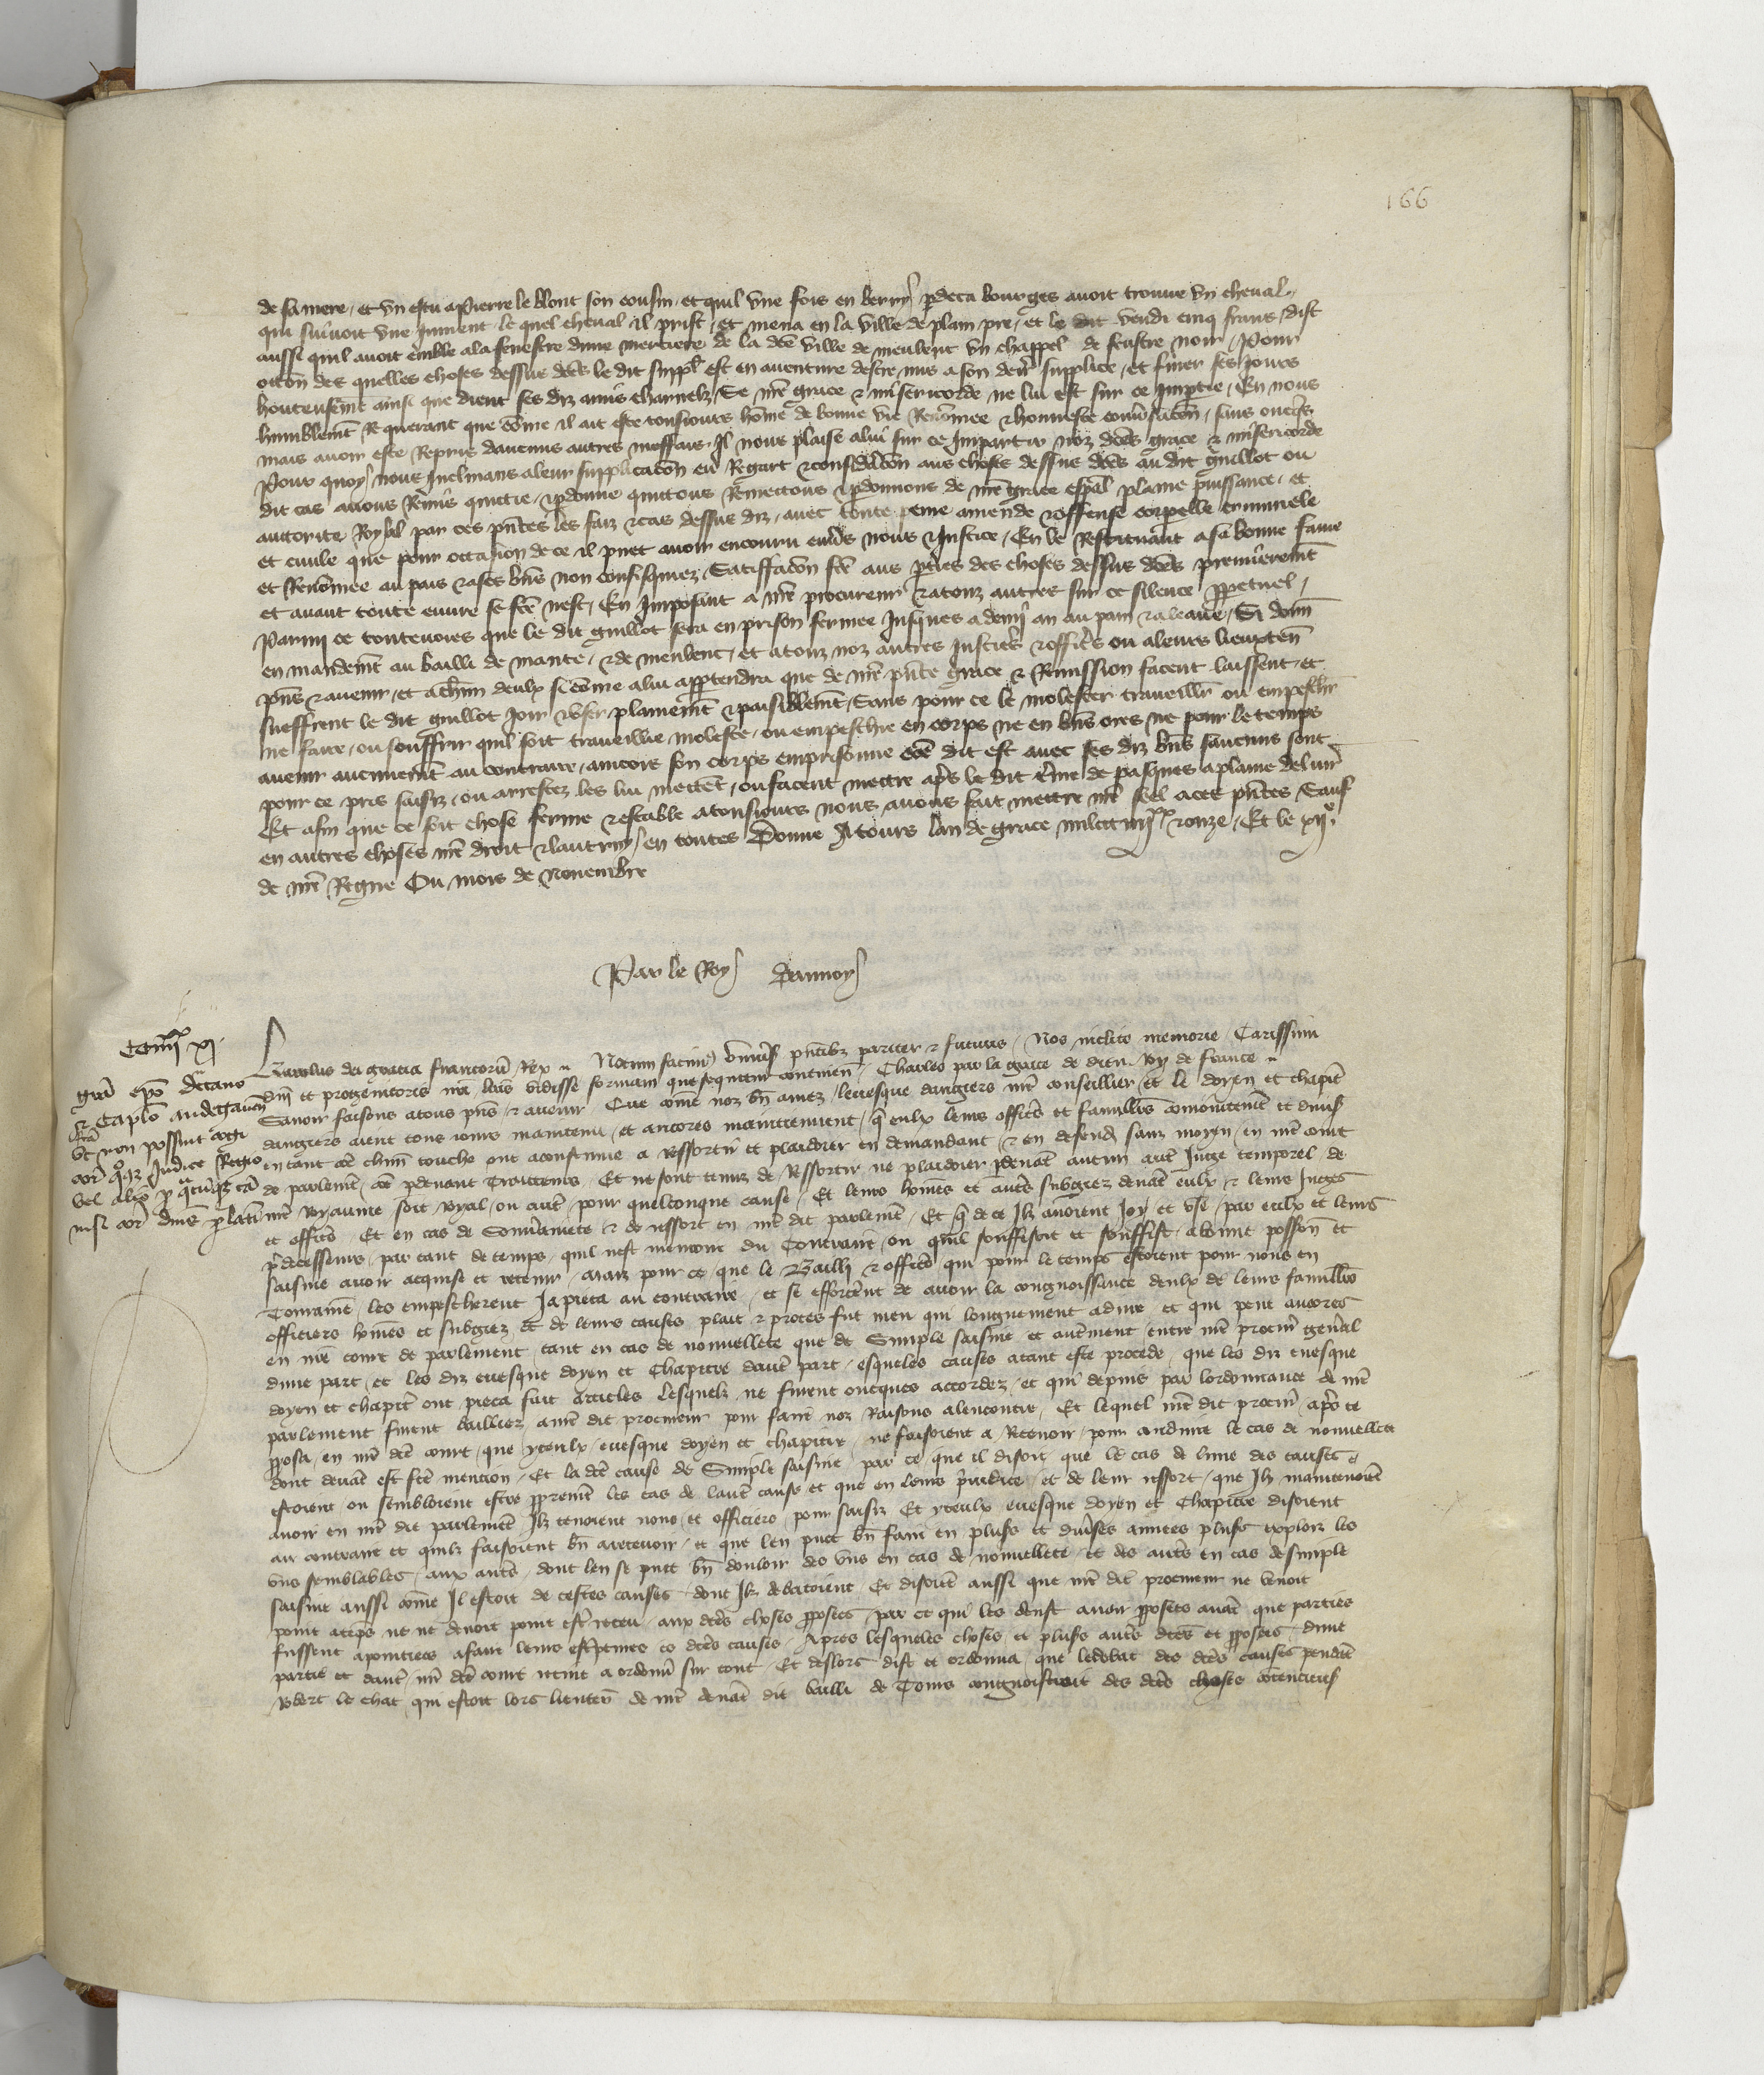 166
de sa mere, et un escu a Pierre le blont son cousin, et quil une fois en berry pdeca bourges avoit trouve un cheval,
qui suivoit une jument, le quel cheval il prist, et mena en la ville de plain pre, et le dit vendi cinq frans, dist
aussi quil avoit emble a la fenestre dune merciere de la dce ville de meulent un chappel de feustre noir, Pour
occon des quelles choses dessus dces le dit suppl est en aventure destre mis a son derr supplice, et finer ses jours
honteusemt ainsi que dient ses diz amis charnelz, Se nre grace & misericorde ne lui est sur ce imptie, En nous
humblemt Requerant que come il ait este tousiours home de bonne vie Renomee & honneste convsacon, sans oncqs
mais avoir este Repris daucuns autres meffais, Il nous plaise a lui sur ce Impartir noz dces grace & misericorde
Pour quoy nous Inclinans a leur supplicacon eu Regart & considacon aus choses dessus dces au dit guillot ou
dit cas avons Remis quictie, & pdonne quictons Remectons & pdonnons de nre grace espal plaine puissance, et
autorite Royal par ces pntes les faiz & cas dessus diz, avec toute peine amende & offense corporelle criminele
et civile que pour occasion de ce il puet avoir encouru envs nous & Justice, En le Restituant a sa bonne fame
et Renomee au pais & a ses bns non confisquez, Satiffacon fce aus pties des choses dessus dces premieremt
et avant toute euvre se fce nest, En Imposant a nre procureur & a touz autres sur ce silence ppetuel,
Parmi ce toutevoies que le dit guillot sera en prison fermee Jusques a demi an au pain & a leaue, Si donn
en mandemt au bailli de mante, & de meulent, et a touz noz autres Justics & offics ou a leurs lieuxten
pns & avenir, et a chun deulx si come a lui apptendra que de nre pnte grace & Remission facent laissent, et
sueffrent le dit guillot Joir & user plainemt & paisiblemt, Sans pour ce le molester travaillr ou empeschr
ne faire, ou souffrir quil soit travaillie moleste, ou empeschie en corps ne en bns ores ne pour le temps
avenir aucunemt au contraire, aincois son corps emprisonne coe dit est avec ses diz bns saucuns sont
pour ce pris saisiz, ou arrestez les lui mettent, ou facent mettre aps le dit tme de pasques a plaine delivr
Et afin que ce soit chose ferme & estable a tousiours nous avons fait mettre nre seel a ces pntes Sauf
en autres choses nre droit & lautruy, en toutes Donne A tours lan de grace mil ccc iiijxx & onze, Et le xijo
de nre Regne Ou mois de novembre
Par le Roy Daunoy
gra epo decano
& Caplo andegaven
ut non possint cogi
cor
nisi cor
Karolus dei gracia francoru Rex Notum facim univs pntibz pariter & futuris, Nos inclite memorie, Carissimi
dni et progenitoris nri lras vidisse formam que sequitur continen, Charles par la grace de dieu Roy de france
Savoir faisons a tous pns & avenir Que come noz bn amez, levesque dangiers nre conseillier, et le doyen et chapit
dangiers aient tous iours maintenu, et ancores maintiennent, q eulx leurs offics et familliers comunemt et divis
en tant coe chun touche ont acoustume a ressortir et plaidoier en demandant, & en defend sanz moyen, en nre court
de parlemt, coe pdevant Et ne sont tenuz de Ressortir ne plaidoier pdevat autrui aut Juge temporel de
nre Royaume soit royal, ou aut pour quelconque cause, Et leurs homes et auts subgiez devat eulx & leurs Juges
et offics, Et en cas de Souvainete & de ressort en nre dit parlemt, Et q de ce Ilz avoient Joy et use, par eulx et leurs
pdecesseurs, par tant de temps, quil nest memoire du Contraire, ou quil souffisoit et souffist, a bonne possion et
saisine avoir acquise et retenir, maiz pour ce, que le Bailli & offics, qui pour le temps estoient pour nous en
Touraine, les empescherent Ja pieca au contraire, et se efforcent de avoir la congnoissance deulx de leurs familiers
officiers homes et subgiez, et de leurs causes plait & proces fut meu qui longuement a dure et qui pent ancores
en nre court de parlement, tant en cas de nouvellete que de Simple saisine et autrement, entre nre procur genal
dune part, et les diz evesque doyen et Chapitre daut part, esqueles causes a tant este procede, que les diz evesque
doyen et chapit ont pieca fait Articles Lesquelx ne furent oncques accordez, et qui depuis par lordonnance de nre
parlement, furent bailliez a nre dit procureur pour faire noz Raisons alencontre, Et lequel nre dit procur aps ce
pposa, en nre dce court, que yceulx, evesque doyen et chapitre, ne faisoient a Recevoir, pour conduire le cas de nouvellete
dont devat est fce mention, Et la dce cause de Simple saisine, par ce, que il disoit, que le cas de lune des causes
estoient ou sembloient estre ppremt les cas de laut cause et que en leurs Juridice, et de leur ressort, que Ilz maintenoiet
avoir en nre dit parlemt Ilz tenoient nous, et officiers, pour saisiz Et yceulx evesque doyen et Chapitre disoient
au contraire et quilz faisoient bn a recevoir, et que len puet bn faire en pluss et divses annees pluss exploiz les
uns semblables, aux auts, dont len se puet bn douloir des uns en cas de nouvellete, et des auts en cas de simple
saisine aussi come Il estoit de cestes causes dont Ilz debatoient, Et disoiet aussi que nre dit procureur ne venoit
point a teps ne ne devoit point est receu, aux dces choses pposees, par ce qui les deust avoir pposees avat que parties
fussent apointiees a faire leurs escriptures es dces causes, Apres lesqueles choses, et pluss auts dces et pposees, dune
partie et daut, nre dce court retint a ordonnr sur tout, Et deslors dist et ordonna, que le debat des dces causes pendat
Robert le chat, qui estoit lors lieuten de nre devat dit bailli de Tours congnoistroit des dces choses contencieus